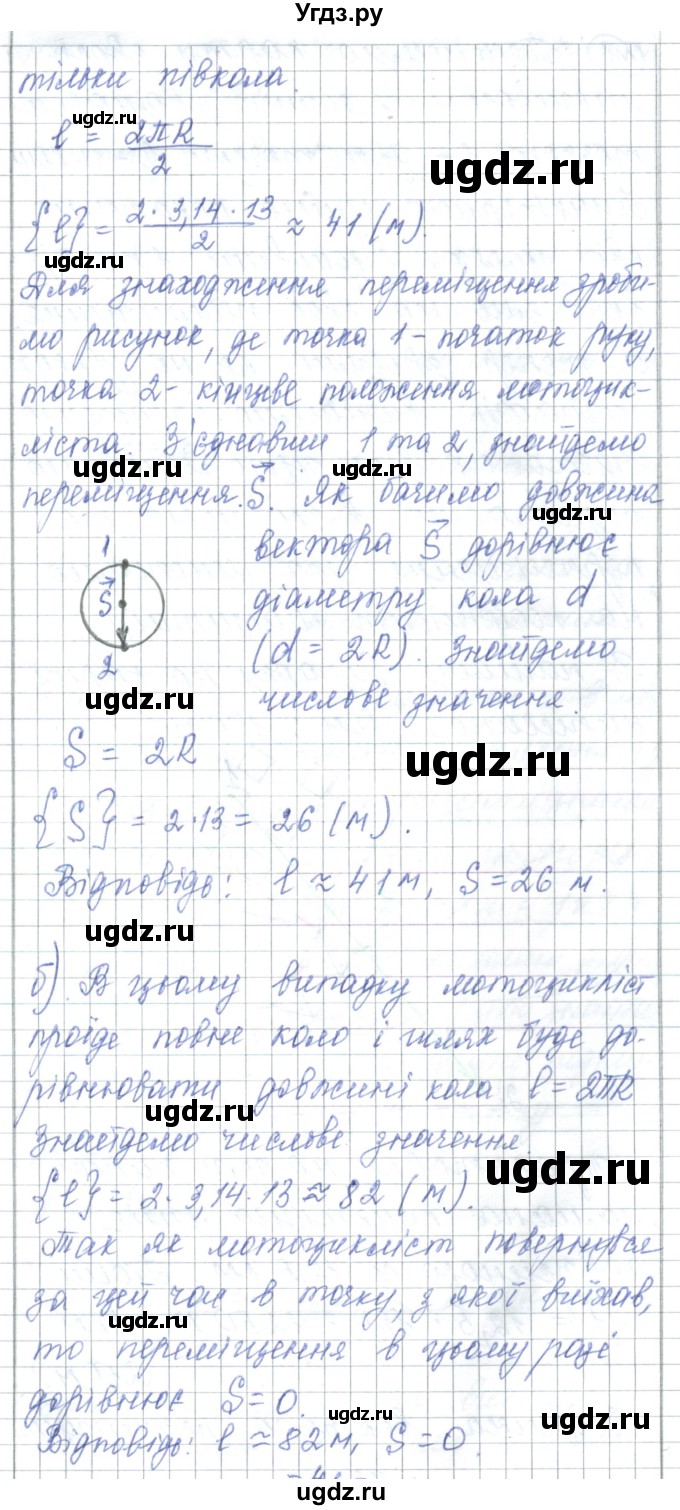 Угдз.ру
тільки півкола.
ugdz.ru
l = 2πR / 2
ugdz.ru
{l} = 2·3,14·13 / 2 ≈ 41 (м).
ugdz.ru
Для знаходження переміщення зроби-
мо рисунок, де точка 1 - початок руху,
точка 2 - кінцеве положення мотоцик-
ліста. З'єднавши 1 та 2, знайдемо
ugdz.ru ugdz.ru
переміщення S⃗. Як бачимо довжина
1 ugdz.ru
вектора S⃗ дорівнює
S⃗ діаметру кола d
2 (d = 2R). Знайдемо
ugdz.ru
числове значення.
S = 2R
ugdz.ru
{S} = 2·13 = 26 (м).
Відповідь: l ≈ 41 м, S = 26 м.
ugdz.ru
б) В цьому випадку мотоцикліст
проїде повне коло і шлях буде до-
рівнювати довжині кола l = 2πR
ugdz.ru
Знайдемо числове значення.
ugdz.ru
{l} = 2·3,14·13 ≈ 82 (м).
Так як мотоцикліст повернувся
за цей час в точку, з якої виїхав,
ugdz.ru
то переміщення в цьому разі
дорівнює S = 0.
ugdz.ru
Відповідь: l ≈ 82 м, S = 0.
ugdz.ru